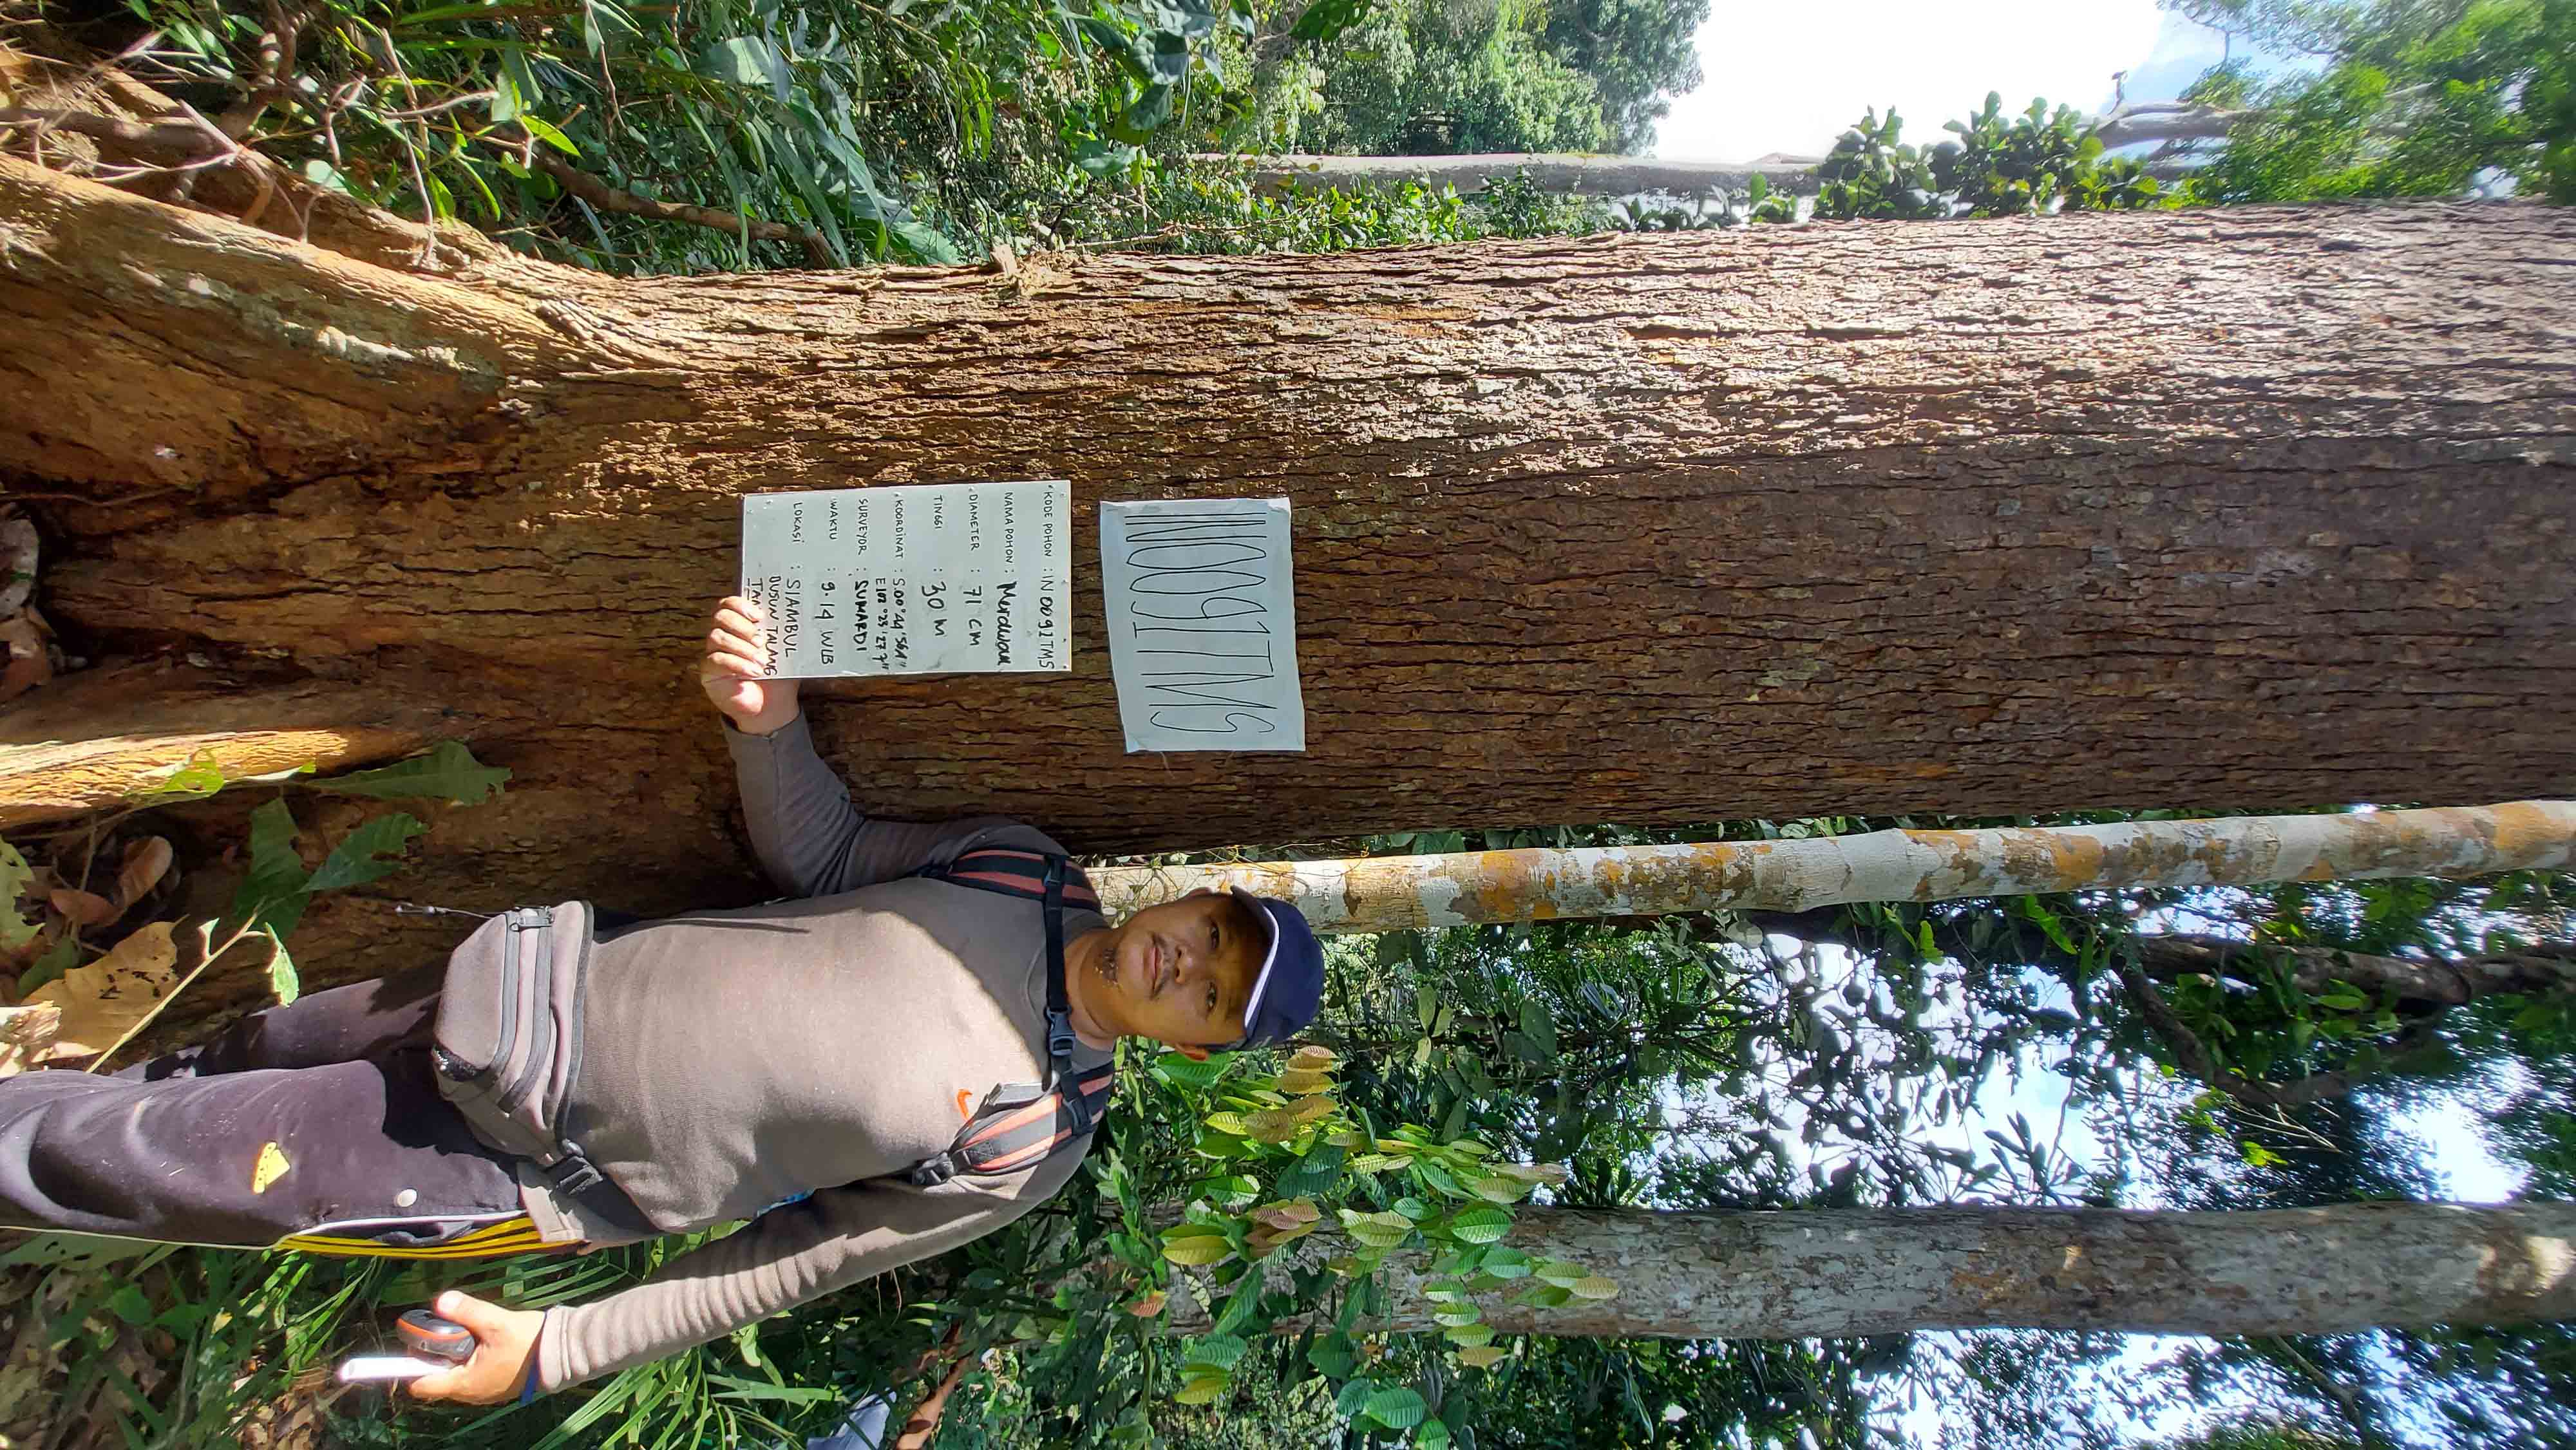 IN0091TMS
KODE POHON : IN 0091TMS
NAMA POHON : Merawan
DIAMETER : 71 CM
TINGGI : 30 M
KOORDINAT : S.00°44'56.1"
E102°23'27.7"
SURVEYOR : SUMARDI
WAKTU : 9.14 WIB
LOKASI : SIAMBUL
DUSUN TALANG